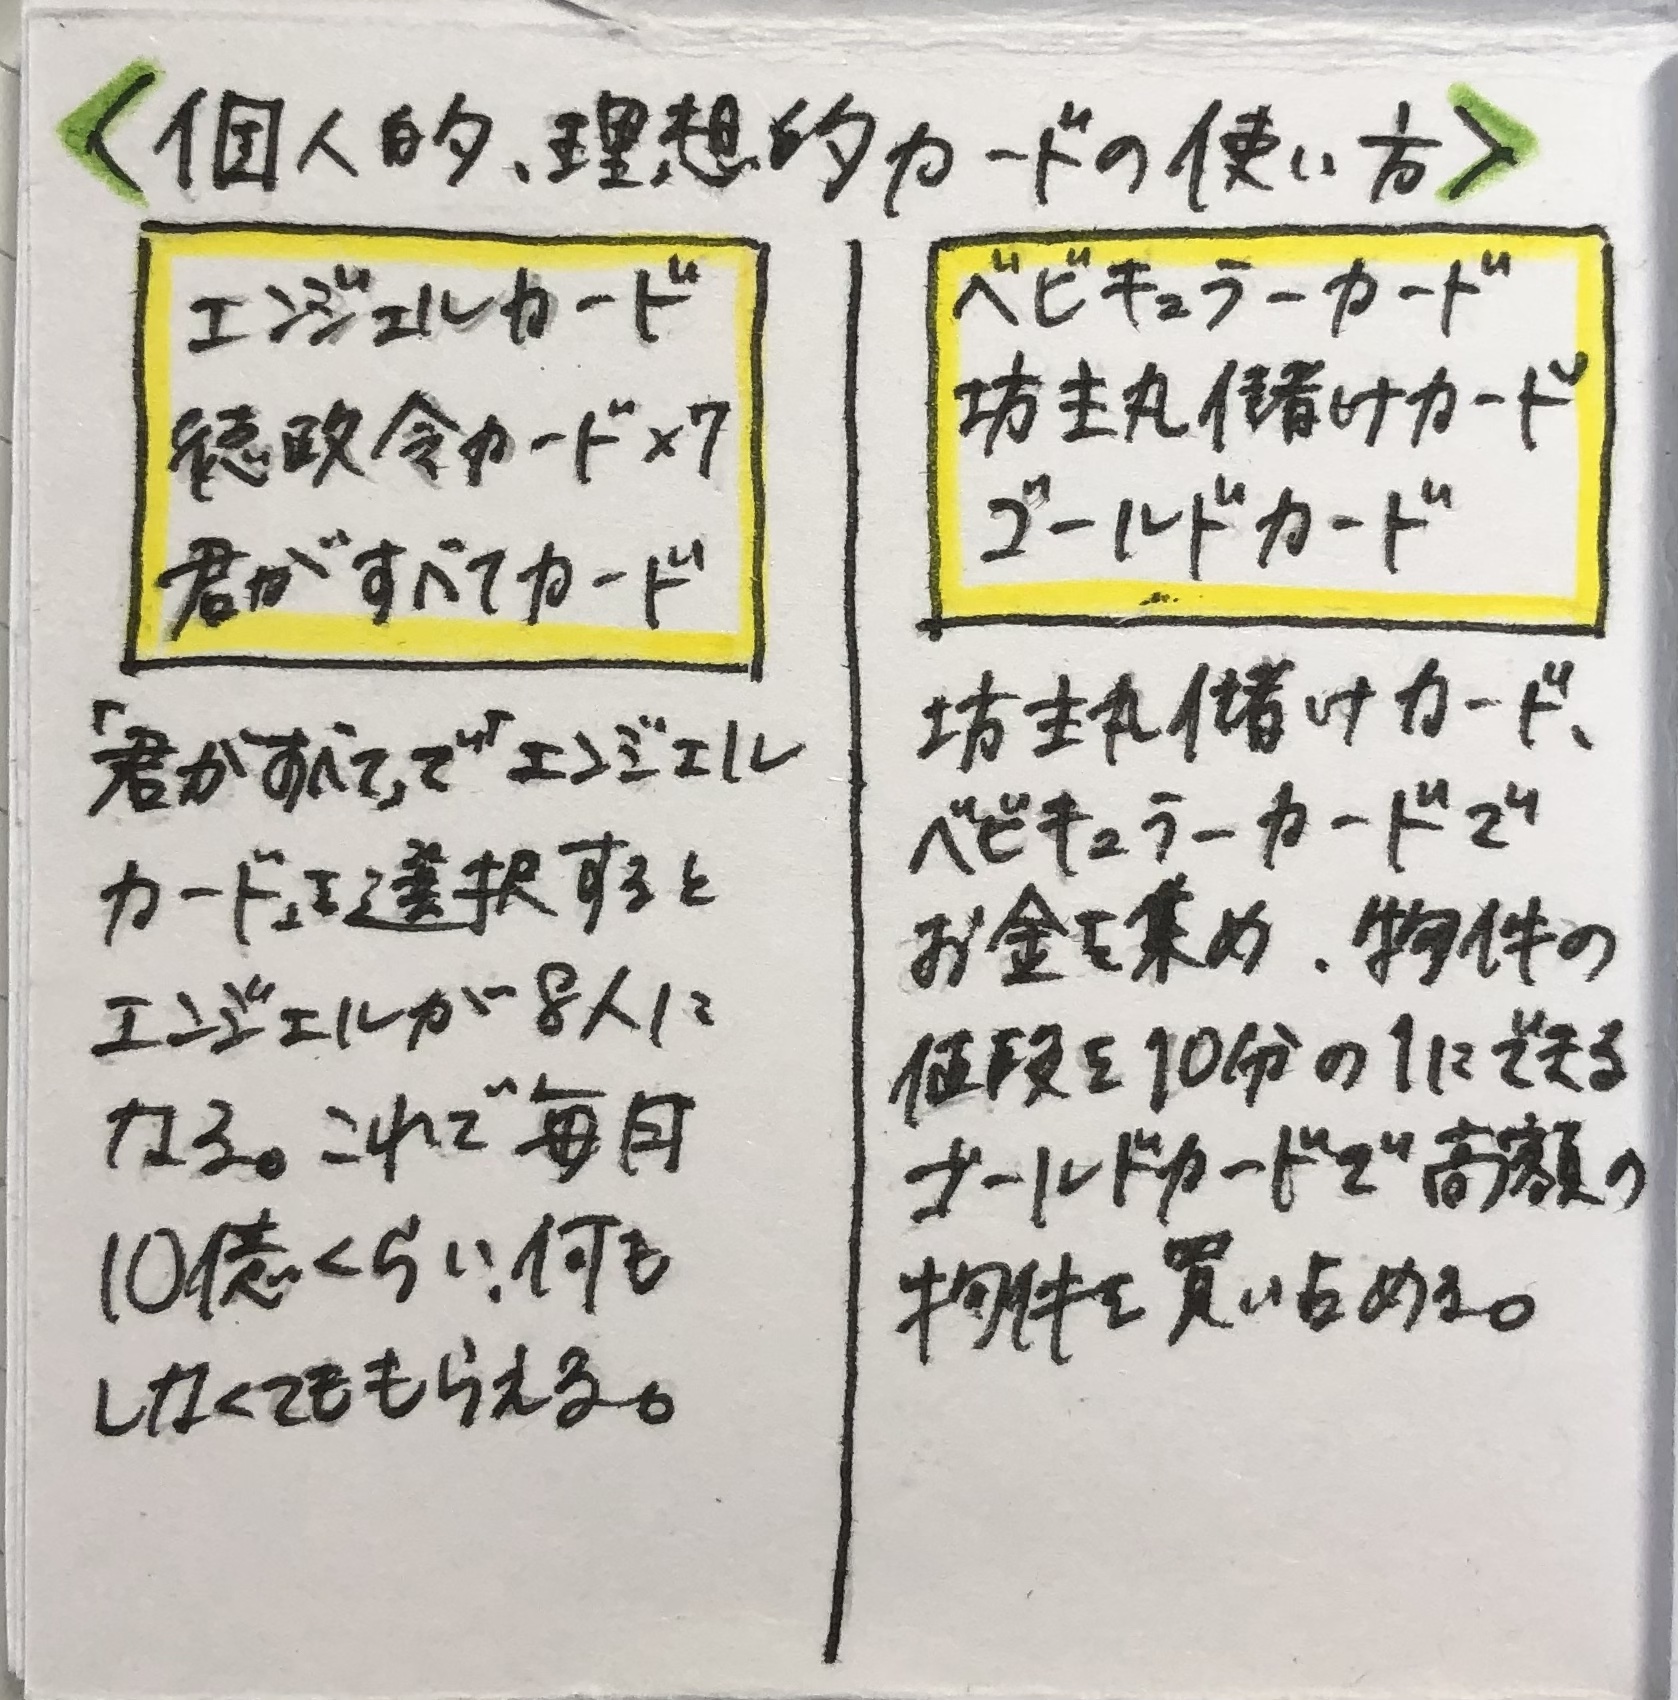 <個人的、理想的カードの使い方>
エンジェルカード
徳政令カード×7
君がすべてカード
「君がすべて」で「エンジェル
カードを選択すると
エンジェルが8人に
なる。これで毎月
10億くらい、何も
しなくてももらえる。
ベビキュラーカード
坊主丸儲けカード
ゴールドカード
坊主丸儲けカード、
ベビキュラーカードで
お金を集め、物件の
値段を10分の1にできる
ゴールドカードで高額の
物件を買い占める。